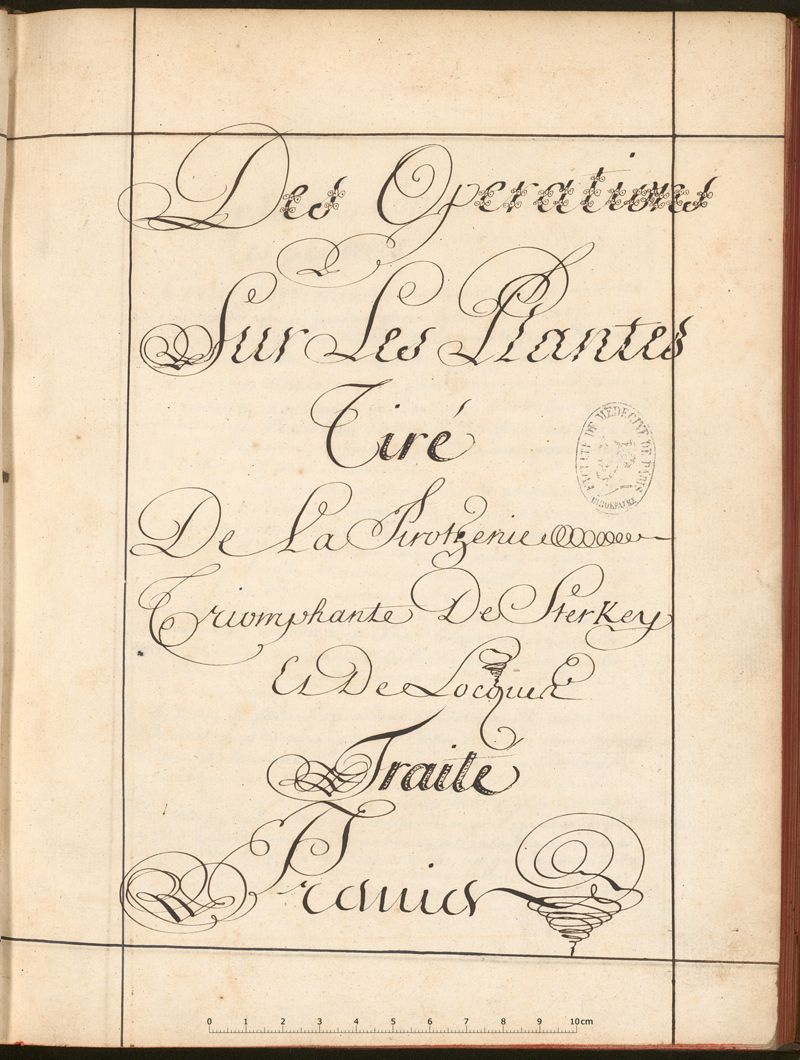 Des Operations
Sur Les Plantes
Tiré
De La Pirothenie
Triomphante De Sterkey
Et De Locques
Traité
Premier
FACULTE DE MEDECINE DE PARIS
0 1 2 3 4 5 6 7 8 9 10cm